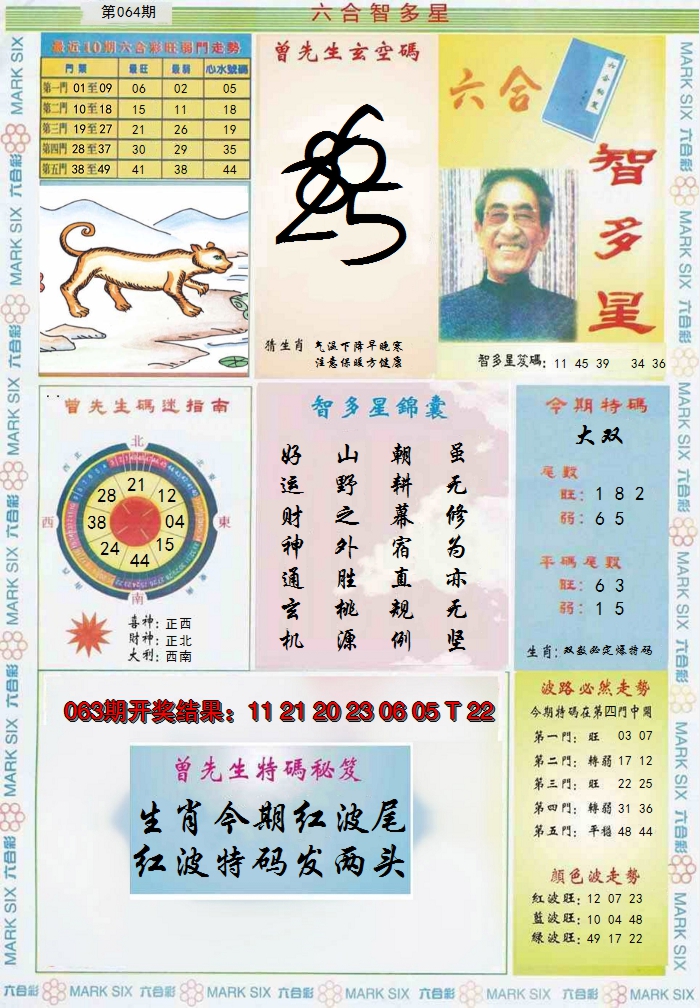 第064期
六合智多星
最近10期六合彩旺弱門走勢
門類 最旺 最弱 心水號碼
第一門 01至09 06 02 05
第二門 10至18 15 11 18
第三門 19至27 21 26 19
第四門 28至37 30 29 35
第五門 38至49 41 38 44
曾先生玄空碼
猜生肖
气温下降早晚寒
注意保暖方健康
六合
智多星
智多星笈碼: 11 45 39 34 36
曾先生碼迷指南
北
東
南
西
21
12
04
15
44
24
38
28
喜神: 正西
财神: 正北
大利: 西南
智多星錦囊
虽无修为亦无坚
朝耕幕宿直规例
山野之外胜桃源
好运财神通玄机
今期特碼
大双
尾數
旺: 1 8 2
弱: 6 5
平碼尾數
旺: 6 3
弱: 1 5
生肖: 双数必定爆特码
063期开奖结果: 11 21 20 23 06 05 T 22
曾先生特碼秘笈
生肖今期红波尾
红波特码发两头
波路必然走勢
今期特碼在第四門中開
第一門: 旺 03 07
第二門: 轉弱 17 12
第三門: 旺 22 25
第四門: 轉弱 31 36
第五門: 平穩 48 44
顔色波走勢
紅波旺: 12 07 23
藍波旺: 10 04 48
绿波旺: 49 17 22
六合彩 MARK SIX 六合彩 MARK SIX 六合彩 MARK SIX 六合彩 MARK SIX 六合彩 MARK SIX